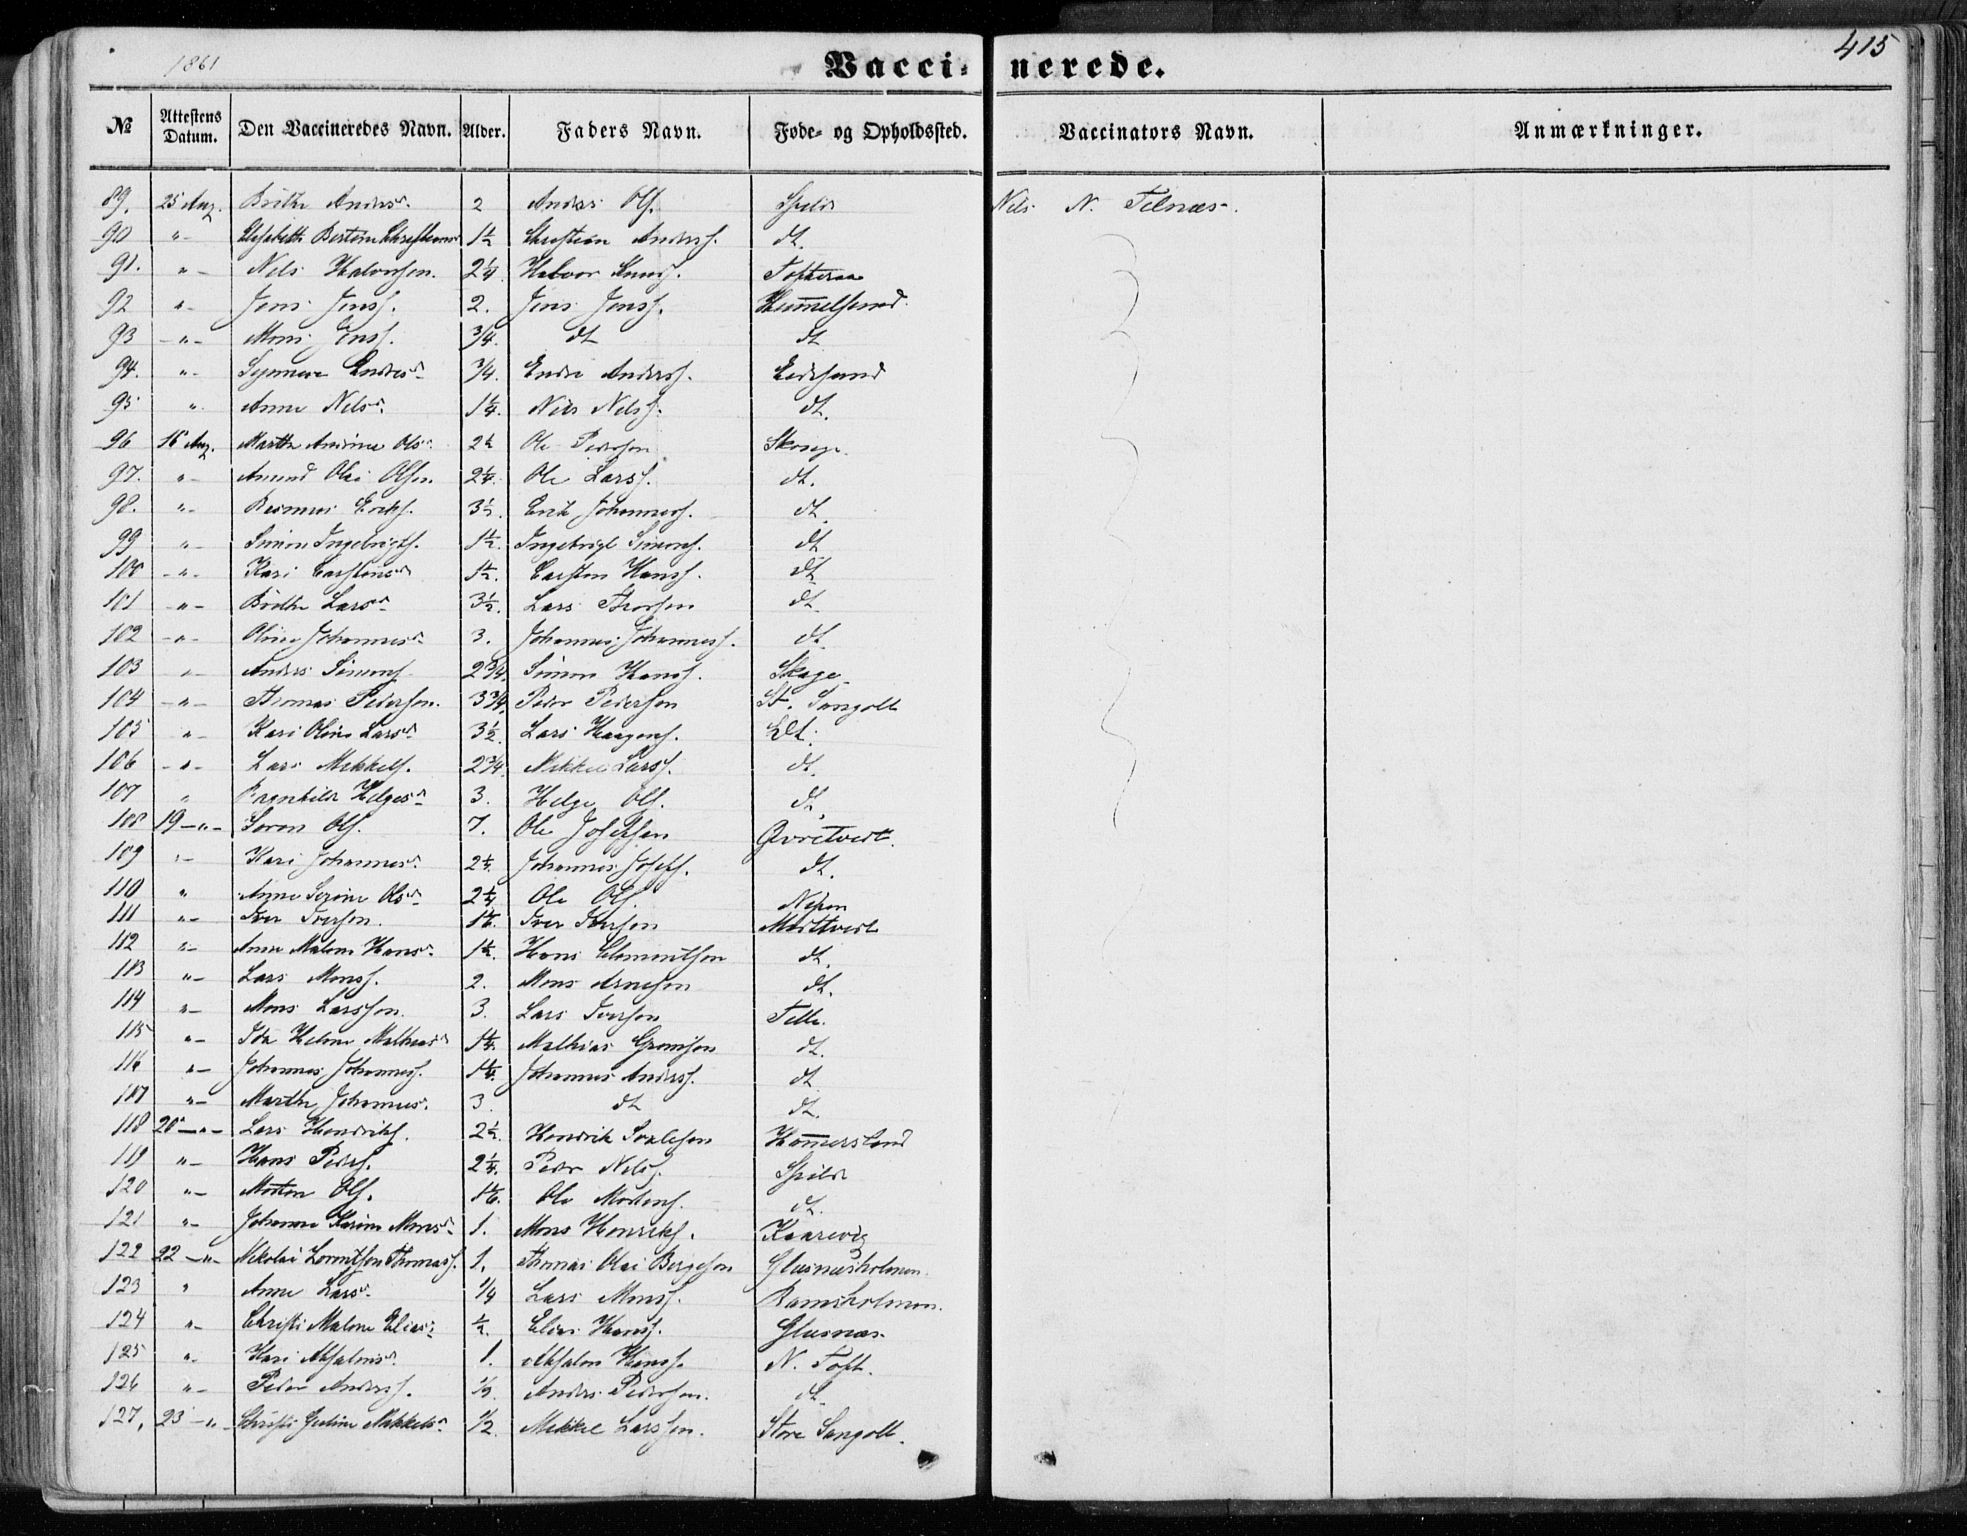 1861
Vaccinerede.
415
№ Attestens Datum. Den Vaccineredes Navn. Alder. Faders Navn. Føde- og Opholdssted. Vaccinators Navn. Anmærkninger.
89. 25 Aug. Brithe Andersdr. 2 Anders Ols. Spilde Nils N. Telnæs.
90 " Elisabeth 1½ Christian Anders. dt.
91. " Nels Halvorsen. 2¼ Halvor
92 " Jens Jens. 2. Jens Jens. Hummelsund.
93 " Mons Jens. 3/4. dt dt
94. " Synneve Endresdr. 3/4. Endre Anders. Eidesund
95 " Anne Nelsdr. 1¼. Nils Nels. dt.
96 16 Aug. Marthe Andrine Olsdr. Ole Pedersen
97. " Amund Olai Olsen. 2¼. Ole Lars. dt.
98. " Rasmus Eriks. 3½. Erik Johanness. dt.
99 " Simon Ingebrigts. 1½. Ingebrigt Simons. dt
100 " Kari Carstensdr. 1½. Carsten Hans. dt
101 " Brithe Larsdr. 3½. Lars Thorsen dt.
102 " Oline Johannesdr. 3. Johannes Johanness. dt.
103 " Anders Simons. 2 3/4. Simon Hans. Skage.
104 " Thomas Pedersen. 3 3/4. Peder Pedersen St. Sangolt
105 " Kari Oline Larsdr. 3½. Lars Haagens. dt.
106 " Lars Mikkels. 2 3/4. Mikkel Lars. dt.
107 " Ragnhild Helgesdr. 3. Helge Ols. dt.
108 19 " Søren Ols. 7. Ole Josefsen Øvretvedt.
109 " Kari Johannesdr. Johannes Josefs. dt.
110 " Anne Serine Olsdr. 2¼ Ole Ols. Nipen
111 " Iver Iversen. Iver Iversen Midttvedt
112 " Anne Malene Hansdr. 1½. Hans Clementsen dt.
113 " Lars Mons. 2. Mons Arnesen dt.
114 " Mons Larssen. 3. Lars Iversen Telle.
115 " Ida Helene Mathiasdr. 1¼. Mathias dt.
116 " Johannes Johanness. 1¼. Johannes Anders. dt
117 " Marthe Johannesdr. 3. dt dt.
118 20 " Lars Hendriks. 2½. Hendrik Hammersland
119 " Hans Peders. 2¼. Peder Nels. Spilde
120 " Morten Ols. Ole Mortens. dt.
121 " Johanne Karine Monsdr. 1. Mons Henriks. Kaarevig
122 22 " Nikolai Lorentsen Thomass. 1. Thomas Olai Bergesen Glesnæsholmen.
123 " Anne Larsdr. 1/4 Lars Mons. Ramsholmen.
124 " Christi Malene Eliasdr. ½. Elias Hans. Glesnæs.
125 " Kari Absalonsdr. 1. Absalon Hans. N. Toft.
126 " Peder Anders. Anders Pedersen. dt.
127. 23 " Christi Mikkelsdr. 1/2. Mikkel Larssen. Store Sangolt.